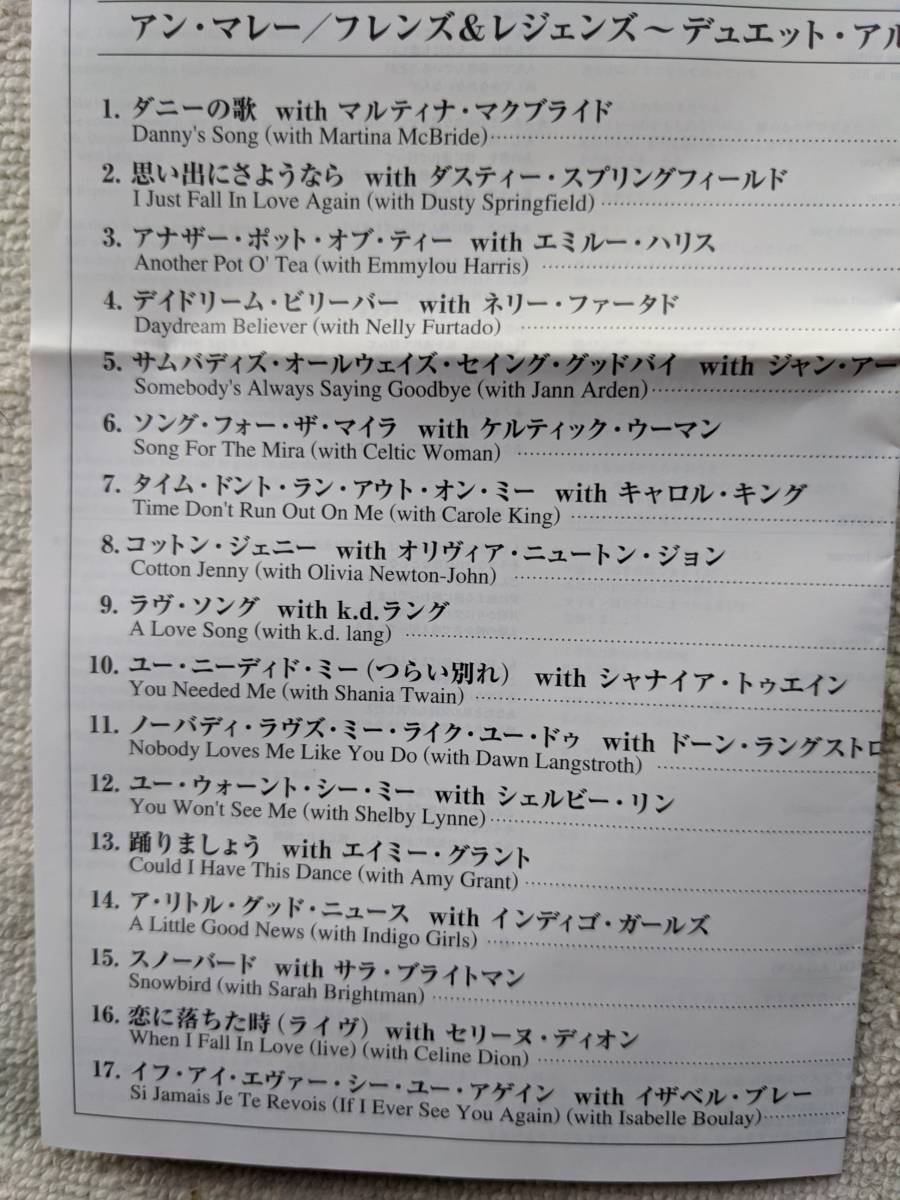 アン・マレー／フレンズ&レジェンズ～デュエット・アル
1. ダニーの歌 with マルティナ・マクブライド
Danny's Song (with Martina McBride)
2. 思い出にさようなら with ダスティー・スプリングフィールド
I Just Fall In Love Again (with Dusty Springfield)
3. アナザー・ポット・オブ・ティー with エミルー・ハリス
Another Pot O' Tea (with Emmylou Harris)
4. デイドリーム・ビリーバー with ネリー・ファータド
Daydream Believer (with Nelly Furtado)
5. サムバディズ・オールウェイズ・セイング・グッドバイ with ジャン・アー
Somebody's Always Saying Goodbye (with Jann Arden)
6. ソング・フォー・ザ・マイラ with ケルティック・ウーマン
Song For The Mira (with Celtic Woman)
7. タイム・ドント・ラン・アウト・オン・ミー with キャロル・キング
Time Don't Run Out On Me (with Carole King)
8. コットン・ジェニー with オリヴィア・ニュートン・ジョン
Cotton Jenny (with Olivia Newton-John)
9. ラヴ・ソング with k.d.ラング
A Love Song (with k.d. lang)
10. ユー・ニーディド・ミー(つらい別れ) with シャナイア・トゥエイン
You Needed Me (with Shania Twain)
11. ノーバディ・ラヴズ・ミー・ライク・ユー・ドゥ with ドーン・ラングストロ
Nobody Loves Me Like You Do (with Dawn Langstroth)
12. ユー・ウォーント・シー・ミー with シェルビー・リン
You Won't See Me (with Shelby Lynne)
13. 踊りましょう with エイミー・グラント
Could I Have This Dance (with Amy Grant)
14. ア・リトル・グッド・ニュース with インディゴ・ガールズ
A Little Good News (with Indigo Girls)
15. スノーバード with サラ・ブライトマン
Snowbird (with Sarah Brightman)
16. 恋に落ちた時(ライヴ) with セリーヌ・ディオン
When I Fall In Love (live) (with Celine Dion)
17. イフ・アイ・エヴァー・シー・ユー・アゲイン with イザベル・ブレー
Si Jamais Je Te Revois (If I Ever See You Again) (with Isabelle Boulay)